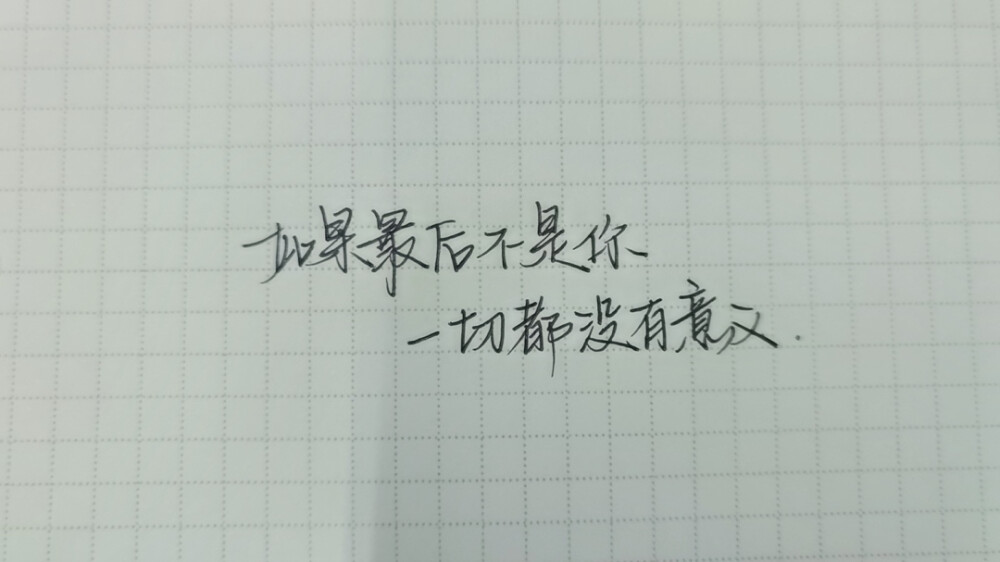 如果最后不是你
一切都没有意义.